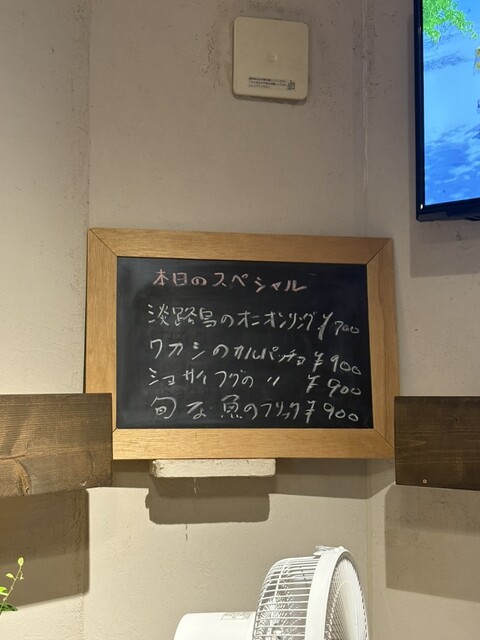 本日のスペシャル
淡路島のオニオンリング ¥700
ワカシのカルパッチョ ¥900
ショウサイフグの 〃 ¥900
旬な魚のフリット ¥900